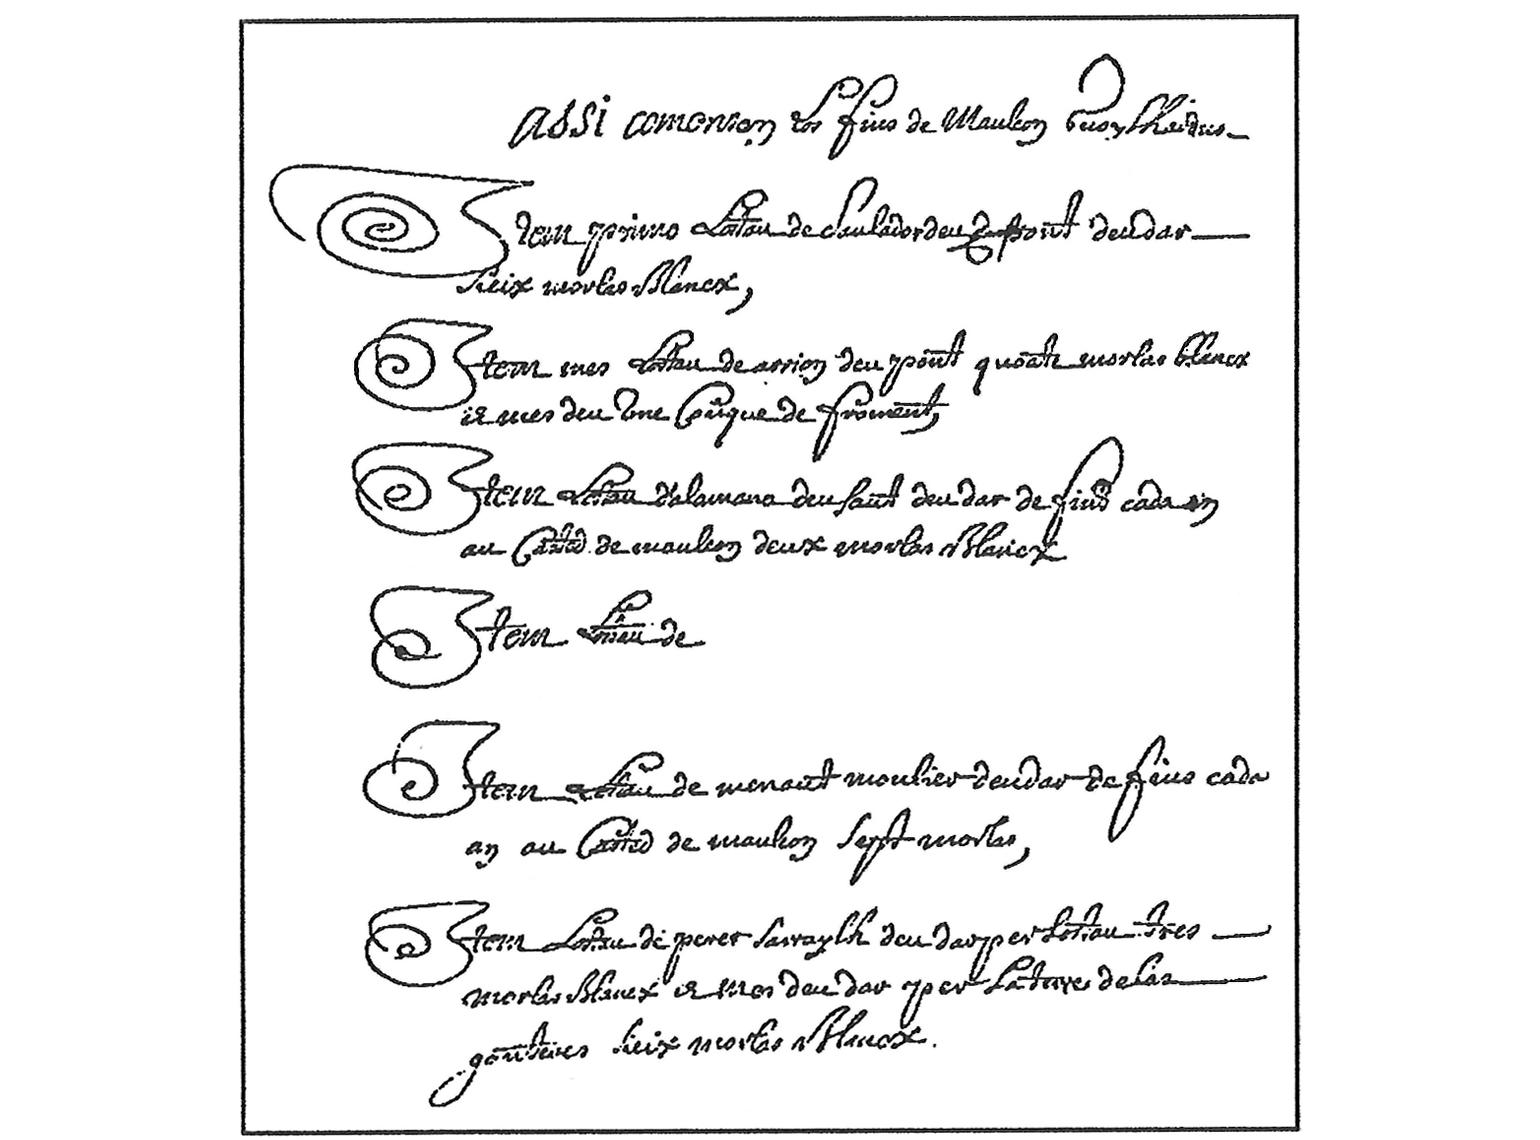 assi comensen los fius de Mauleon
Item primo Lostau de deu pont deu dar
sieix morlas blancx,
Item mes Lostau de arrion deu pont quoate morlas blancx
et mes deu une conque de froment,
Item Lostau dalamana deu saut deu dar de fius cada an
au Casted de mauleon deux morlas blancx
Item Lostau de
Item Lostau de menaut moulier deu dar de fius cada
an au Casted de mauleon sept morlas,
Item Lostau de peret sarraylh deu dar per lostau tres
morlas blancx et mes deu dar per la terre de las
sieix morlas blancx.